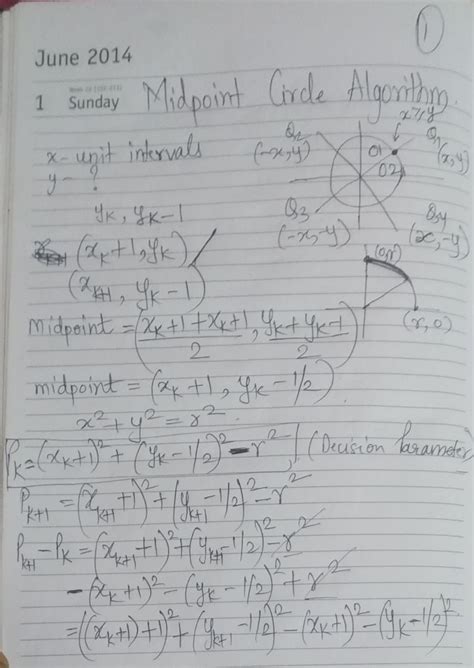 1
June 2014
1 Sunday Midpoint Circle Algorithm.
x≥y
x- unit intervals
y- ?
yₖ, yₖ-1
(xₖ+1, yₖ)
(xₖ₊₁, yₖ-1)
Q2
(-x,y)
O1
O2
Q1
(x,y)
Q3
(-x,-y)
Q4
(x,-y)
(0,r)
(r,0)
midpoint = (xₖ+1+xₖ+1/2, yₖ+yₖ-1/2)
midpoint = (xₖ+1, yₖ-1/2)
x²+y²=r².
Pₖ=(xₖ+1)²+(yₖ-1/2)²-r² (Decision Parameter)
Pₖ₊₁ = (xₖ₊₁+1)²+(yₖ₊₁-1/2)²-r²
Pₖ₊₁-Pₖ=(xₖ₊₁+1)²+(yₖ₊₁-1/2)²-r²
-(xₖ+1)²-(yₖ-1/2)²+r²
=((xₖ+1)+1)²+(yₖ₊₁-1/2)²-(xₖ+1)²-(yₖ-1/2)²